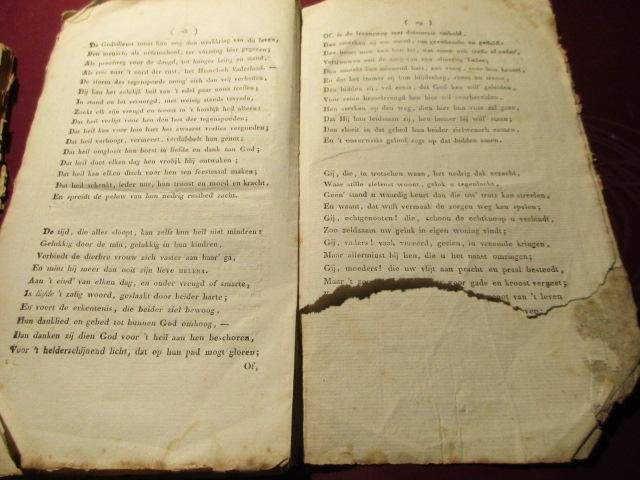 De Godsdienst toont hun nog den werkkring van dit leven,
Den mensch, als oefenschool, ter vorming hier gegeven;
Als proefweg voor de deugd, tot hooger kring en stand,
Als reis naar 't oord der rust, het Hemelsch Vaderland. —
De storm des tegenspoeds moog' zich dan vrij verheffen,
Hij kan het zek're heil van 't edel paar nooit treffen;
In stand en lot vernoegd, met weinig steeds tevreên,
Zoekt elk zijn vreugd en troost in 't huislijk heil alleen:
Dat heil verligt voor hen den last der tegenspoeden;
Dat heil kan voor hun hart het zwaarst verlies vergoeden;
Dat heil verhoogt, vermeert, verdubbelt hun genot;
Dat heil ontgloeit hun borst in liefde en dank aan God;
Dat heil doet elken dag hen vrolijk blij ontwaken;
Dat heil kan elken disch voor hen ten feestmaal maken;
Dat heil schenkt, ieder uur, hun troost en moed en kracht,
En spreidt de peluw van hun nedrig rustbed zacht.
De tijd, die alles sloopt, kan zelfs hun heil niet mindren:
Gelukkig door de min, gelukkig in hun kindren,
Verbindt de dierbre vrouw zich vaster aan haar' ga,
En mint hij meer dan ooit zijn lieve HELENA.
Aan 't eind' van elken dag, en onder vreugd of smarte,
Is liefde 't zalig woord, geslaakt door beider harte;
En voert de erkentenis, die beider ziel bewoog,
Hun danklied en gebed tot hunnen God omhoog. —
Dan danken zij dien God voor 't heil aan hen beschoren,
Voor 't helderschijnend licht, dat op hun pad mogt gloren;
Of,
( 29 )
Of, is de levensweg met duisternis omhuld,
Dan
Vertrouwen
Dan smeekt hun minnend hart, met
En dat het immer zij hun blijdschap, roem en
Dan bidden zij, vol ernst, dat God hen wil' geleiden,
Voor reine hemelvreugd hen hier wil voorbereiden,
Hen sterken op den weg, dien hier hun voet zal gaan,
Dat Hij hun leidsman zij, hen immer bij will' staan;
Dan vloeit in dat gebed hun beider zielwensch zamen,
En 't onsterf'lijk geluid zegt op dat bidden amen.
Gij, die, in trotschen waan, het nedrig dak veracht,
Waar stille zielrust woont, geluk u tegenlacht,
Geen' stand u waardig keurt dan die uw' trots kan streelen,
En waant, dat woest vermaak de zorgen weg kan spelen;
Gij, echtgenooten! die, schoon de echtknoop u verbindt,
Zoo zeldzaam uw geluk in eigen woning vindt;
Gij, vaders! vaak vereerd, gezien, in vreemde kringen,
Maar allerminst bij hen, die u het naast omringen;
Gij, moeders! die uw vlijt aan pracht en praal besteedt,
Maar 't voor gade en kroost vergeet;
genot van 't leven